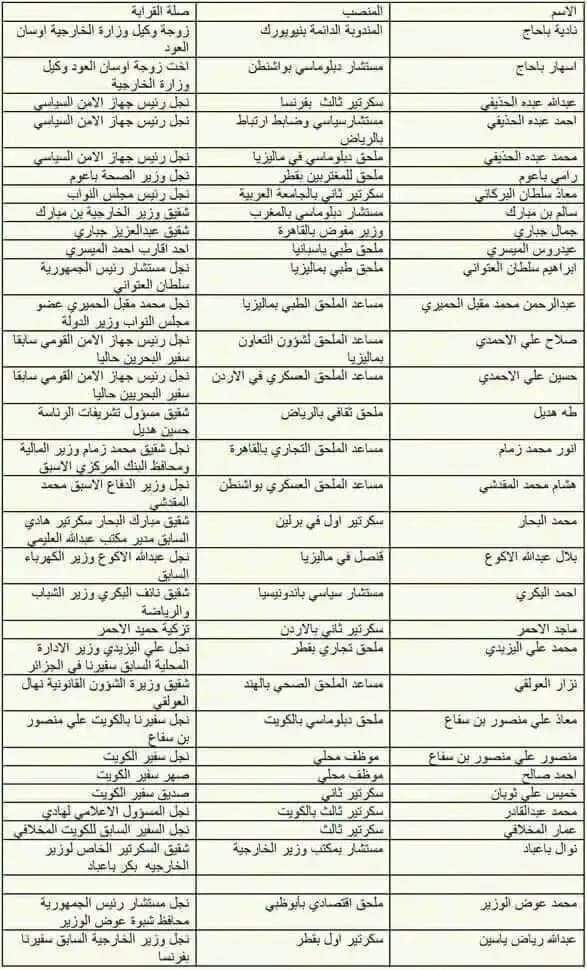 الاسم المنصب صلة القرابة
نادية باحاج المندوبة الدائمة بنيويورك زوجة وكيل وزارة الخارجية اوسان
العود
اسهار باحاج مستشار دبلوماسي بواشنطن اخت زوجة اوسان العود وكيل
وزارة الخارجية
عبدالله عبده الحذيفي سكرتير ثالث بفرنسا نجل رئيس جهاز الامن السياسي
احمد عبده الحذيفي مستشارسياسي وضابط ارتباط نجل رئيس جهاز الامن السياسي
بالرياض
محمد عبده الحذيفي ملحق دبلوماسي في ماليزيا نجل رئيس جهاز الامن السياسي
رامي باعوم ملحق للمغتربين بقطر نجل وزير الصحة باعوم
معاذ سلطان البركاني سكرتير ثاني بالجامعة العربية نجل رئيس مجلس النواب
سالم بن مبارك مستشار دبلوماسي بالمغرب شقيق وزير الخارجية بن مبارك
جمال جباري وزير مفوض بالقاهرة شقيق عبدالعزيز جباري
عيدروس الميسري ملحق طبي باسبانيا احد اقارب احمد الميسري
ابراهيم سلطان العتواني ملحق طبي بماليزيا نجل مستشار رئيس الجمهورية
سلطان العتواني
عبدالرحمن محمد مقبل الحميري مساعد الملحق الطبي بماليزيا نجل محمد مقبل الحميري عضو
مجلس النواب وزير الدولة
صلاح علي الاحمدي مساعد الملحق لشؤون التعاون نجل رئيس جهاز الامن القومي سابقا
بماليزيا سفير البحرين حاليا
حسين علي الاحمدي مساعد الملحق العسكري في الاردن نجل رئيس جهاز الامن القومي سابقا
سفير البحريين حاليا
طه هديل ملحق ثقافي بالرياض شقيق مسؤول تشريفات الرئاسة
حسين هديل
انور محمد زمام مساعد الملحق التجاري بالقاهرة نجل شقيق محمد زمام وزير المالية
ومحافظ البنك المركزي الاسبق
هشام محمد المقدشي مساعد الملحق العسكري بواشنطن نجل وزير الدفاع الاسبق محمد
المقدشي
محمد البحار سكرتير اول في برلين شقيق مبارك البحار سكرتير هادي
السابق مدير مكتب عبدالله العليمي
بلال عبدالله الاكوع قنصل في ماليزيا نجل عبدالله الاكوع وزير الكهرباء
السابق
احمد البكري مستشار سياسي باندونيسيا شقيق نائف البكري وزير الشباب
والرياضة
ماجد الاحمر سكرتير ثاني بالاردن تزكية حميد الاحمر
محمد علي اليزيدي ملحق تجاري بقطر نجل علي اليزيدي وزير الادارة
المحلية السابق سفيرنا في الجزائر
نزار العولقي مساعد الملحق الصحي بالهند شقيق وزيرة الشؤون القانونية نهال
العولقي
معاذ علي منصور بن سفاع ملحق دبلوماسي بالكويت نجل سفيرنا بالكويت علي منصور
بن سفاع
منصور علي منصور بن سفاع موظف محلي نجل سفير الكويت
احمد صالح موظف محلي صهر سفير الكويت
خميس علي ثوبان سكرتير ثاني صديق سفير الكويت
محمد عبدالقادر سكرتير ثالث بالكويت نجل المسؤول الاعلامي لهادي
عمار المخلافي سكرتير ثالث نجل السفير السابق للكويت المخلافي
نوال باعباد مستشار بمكتب وزير الخارجية شقيق السكرتير الخاص لوزير
الخارجيه بكر باعباد
محمد عوض الوزير ملحق اقتصادي بأبوظبي نجل مستشار رئيس الجمهورية
محافظ شبوة عوض الوزير
عبدالله رياض ياسين سكرتير اول بقطر نجل وزير الخارجية السابق سفيرنا
بفرنسا